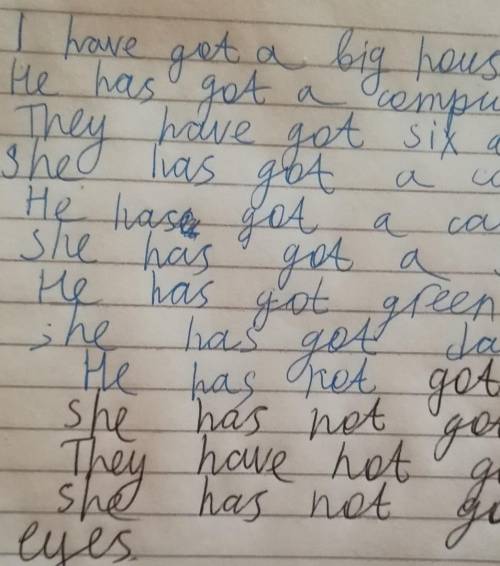 I have got a big hous
He has got a compu
They have got six a
She has got a co
He has got a ca
She has got a
He has got green
she has got da
He has not got
She has not got
They have not go
She has not go
eyes.